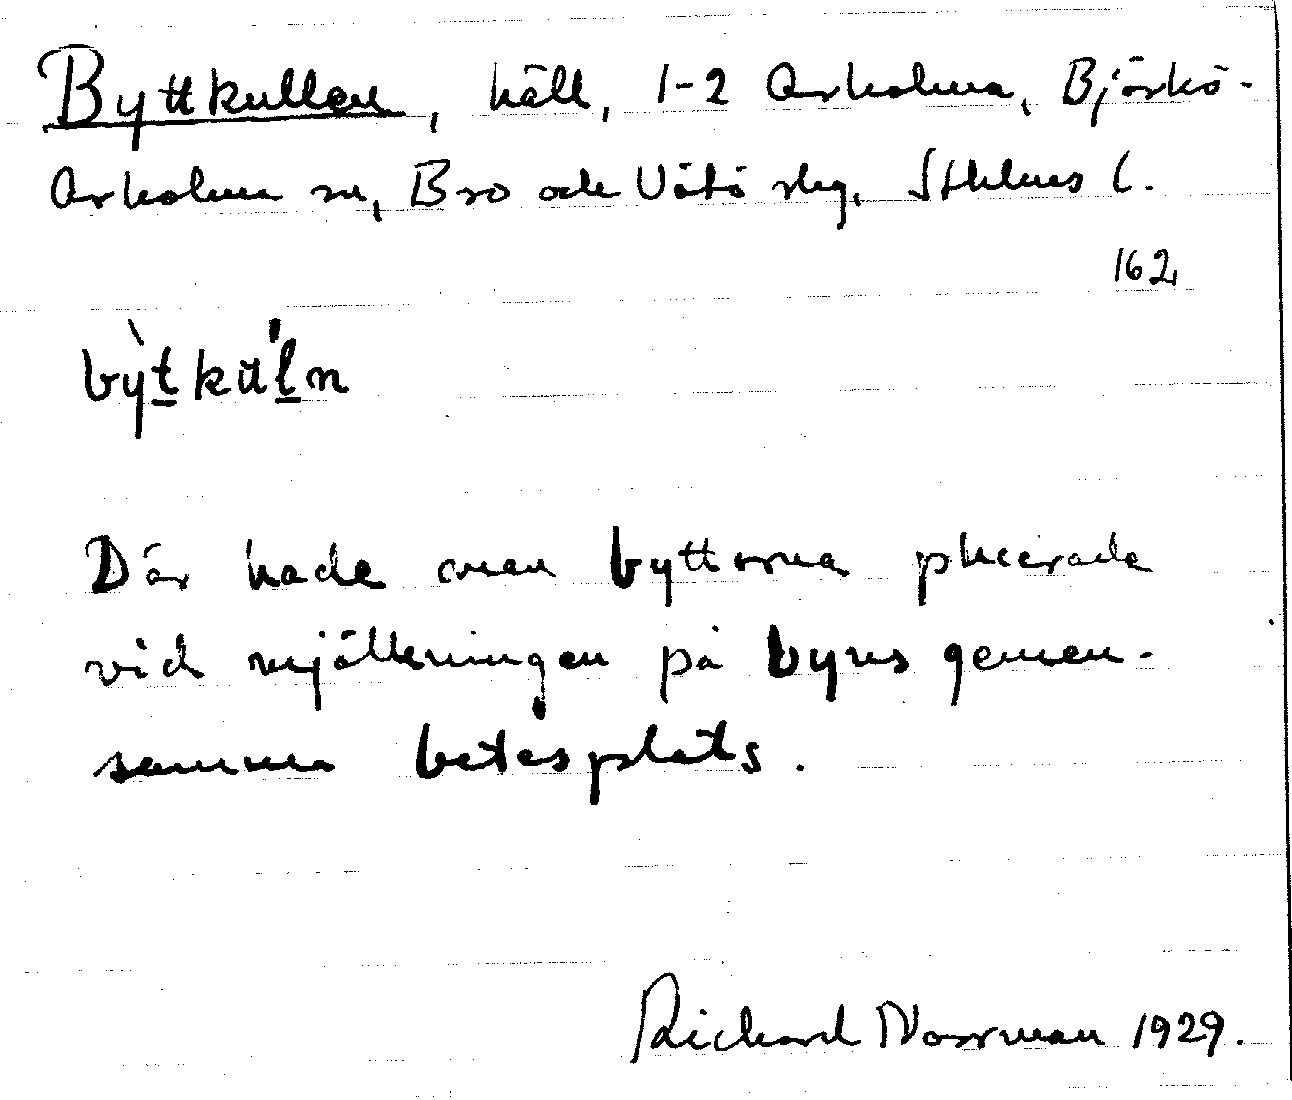 Byttkullen, häll, 1-2 Arholma, Björkö-
Arholma sn, Bro och Vätö skg, Sthlms l.
162
bỳtkúln
Där hade man byttorna placerade
vid mjölkningen på byns gemen-
samma betesplats.
Richard Norrman 1929.